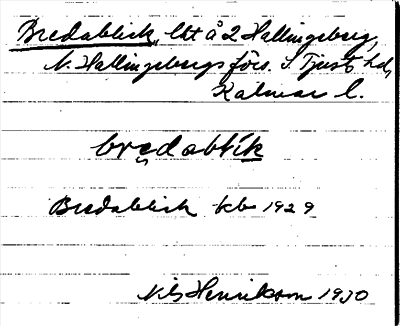 Bredablick, lht å 2 Hallingeberg,
N. Hallingebergs förs. S. Tjusts hd,
Kalmar l.
bredablik
Bredablick kbr 1929
Nils Henrikson 1930